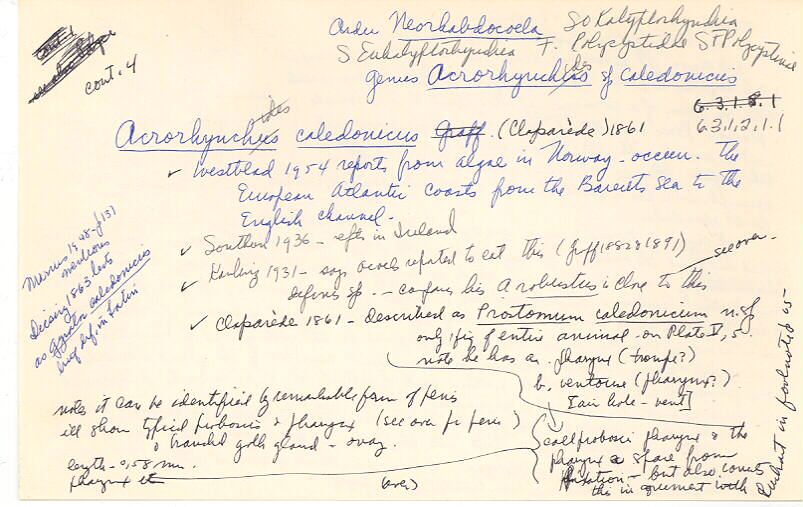 cont. 4
Order Neorhabdocoela SO Kalyptorhynchia
S Eukalyptorhynchia F. Polycystidae SF Polycystinae
genus Acrorhynchides sp caledonicus
6.3.1.8.1
6.3.1.2.1.1
Acrorhynchides caledonicus Graff (Claparède) 1861
✓ Westblad 1954 reports from algae in Norway - occurr. the
European Atlantic coasts from the Barents Sea to the
English channel.
✓ Southern 1936 - in Ireland
✓ Karling 1931 - says reported to eat this (Graff 1882 & 1891)
see over
defines sp. -- compares his A robustus is close to this
✓ Claparède 1861 - described as Prostomum caledonicum n.sp
only 1 fig of entire animal - on Plate V, 5.
note he has a. pharynx (trompe?)
b. ventouse (pharynx?)
[air hole - vent]
Marcus 1948 - p131
mentions
Diesing 1863 lists
as Gyrator caledonicus
brief def. in Latin
notes it can be identified by remarkable form of penis
ill show typical proboscis & pharynx (see over for penis)
& yolk gland - ovary.
length - 0,58 mm.
pharynx
(over)
call proboscis pharynx & the
pharynx a
- but also
this in agreement with
Leuckart in footnote p 65 -